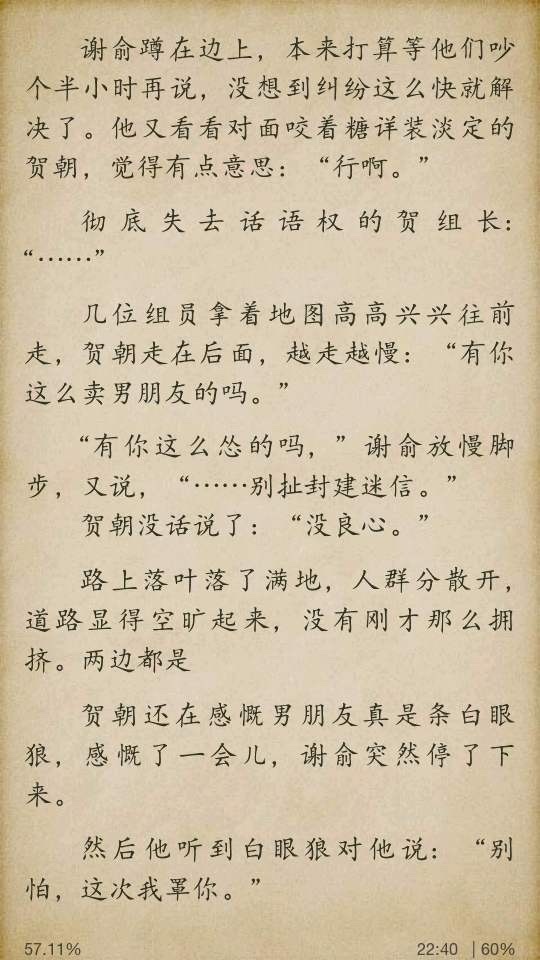 谢俞蹲在边上，本来打算等他们吵
个半小时再说，没想到纠纷这么快就解
决了。他又看看对面咬着糖详装淡定的
贺朝，觉得有点意思：“行啊。”
彻底失去话语权的贺组长：
“……”
几位组员拿着地图高高兴兴往前
走，贺朝走在后面，越走越慢：“有你
这么卖男朋友的吗。”
“有你这么怂的吗，”谢俞放慢脚
步，又说，“……别扯封建迷信。”
贺朝没话说了：“没良心。”
路上落叶落了满地，人群分散开，
道路显得空旷起来，没有刚才那么拥
挤。两边都是
贺朝还在感慨男朋友真是条白眼
狼，感慨了一会儿，谢俞突然停了下
来。
然后他听到白眼狼对他说：“别
怕，这次我罩你。”
57.11% 22:40 | 60%